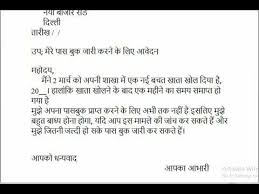 नया बाजार रोड
दिल्ली
तारीख / /
उप; मेरे पास बुक जारी करने के लिए आवेदन
महोदय,
मैंने 2 मार्च को अपनी शाखा में एक नई बचत खाता खोल दिया है,
20__। हालांकि खाता खोलने के बाद एक महीने का समय समाप्त हो
गया है
मुझे अपना पासबुक प्राप्त करने के लिए अभी तक नहीं है इसलिए मुझे
बहुत बाध्य होना होगा, यदि आप इस मामले की जांच कर सकते हैं और
मुझे जितनी जल्दी हो सके पास बुक जारी कर सकते हैं।
आपको धन्यवाद
आपका आभारी